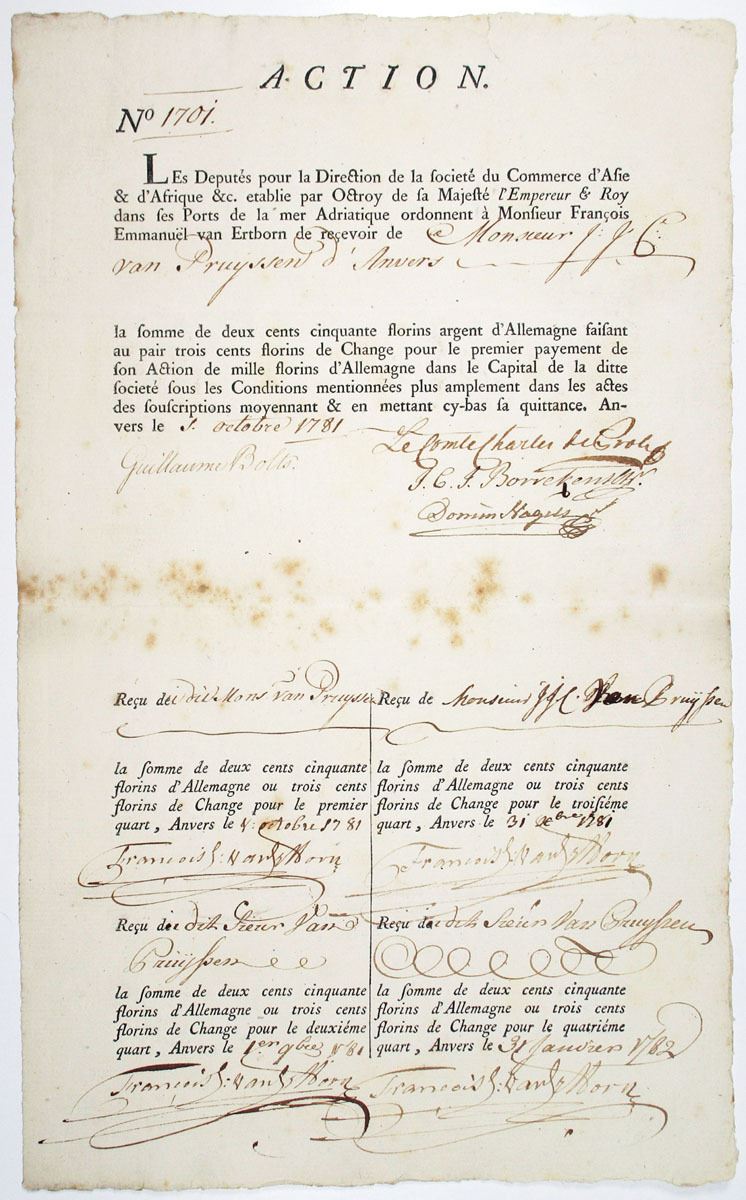 ACTION.
Nº 1701.
LEs Deputés pour la Direction de la societé du Commerce d'Aſie
& d'Afrique &c. etablie par Octroy de ſa Majeſté l'Empereur & Roy
dans ſes Ports de la mer Adriatique ordonnent à Monſieur François
Emmanuël van Ertborn de reçevoir de Monsieur J: J: C:
van Pruyssen d'Anvers
la ſomme de deux cents cinquante florins argent d'Allemagne faiſant
au pair trois cents florins de Change pour le premier payement de
ſon Action de mille florins d'Allemagne dans le Capital de la ditte
ſocieté ſous les Conditions mentionnées plus amplement dans les actes
des ſouſcriptions moyennant & en mettant cy-bas ſa quittance. An-
vers le octobre 1781
Le Comte Charles de Proli
Guillaume Bolts.
J. C. J. Borrekens
Domin Nagels
Reçu de dit Mons van Pruyssen
la ſomme de deux cents cinquante
florins d'Allemagne ou trois cents
florins de Change pour le premier
quart, Anvers le octobre 1781
François E: van Ertborn
Reçu de Monsieur J J C. Van Pruyssen
la ſomme de deux cents cinquante
florins d'Allemagne ou trois cents
florins de Change pour le troiſiéme
quart, Anvers le 31 Xbre 1781
François E: van Ertborn
Reçu du dit Sieur Van
Pruyssen
la ſomme de deux cents cinquante
florins d'Allemagne ou trois cents
florins de Change pour le deuxiéme
quart, Anvers le 1er 9bre 1781
François E: van Ertborn
Reçu du dit Sieur Van Pruyssen
la ſomme de deux cents cinquante
florins d'Allemagne ou trois cents
florins de Change pour le quatriéme
quart, Anvers le 31 Janvier 1782
François E: van Ertborn